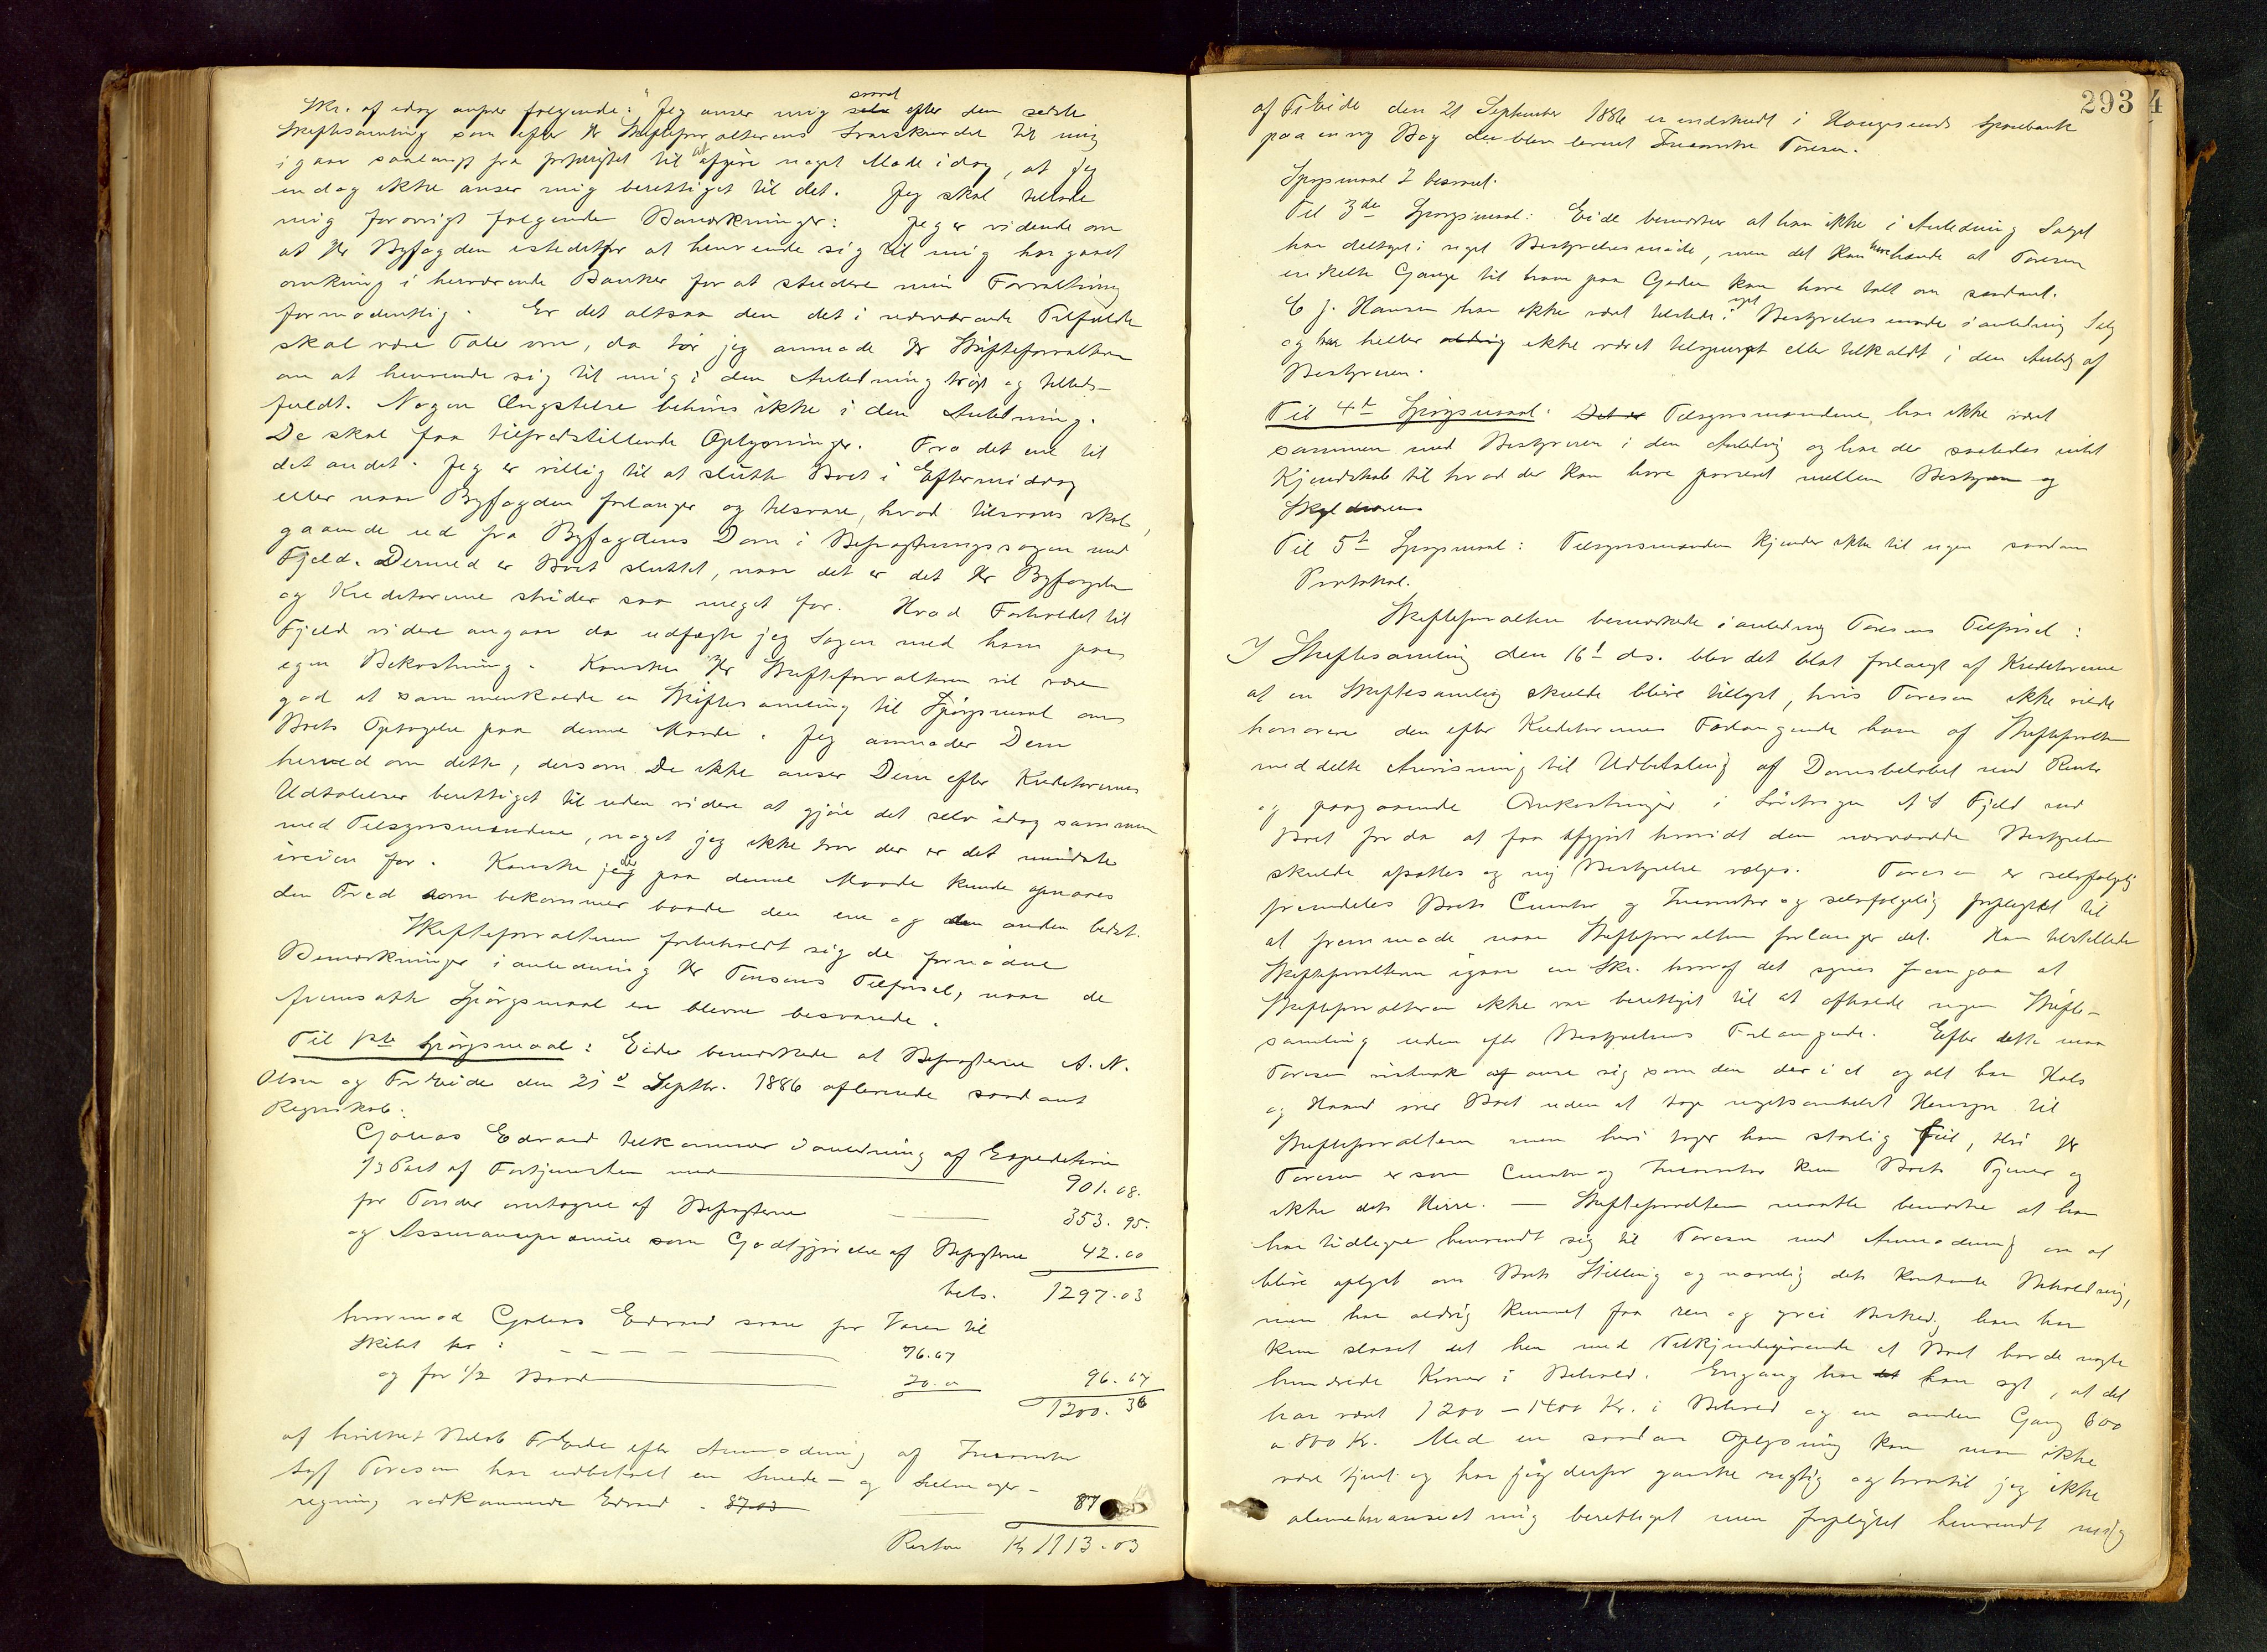 Skr. af idag anfører følgende: "Jeg anser mig saavel efter den sidste
Skiftesamling som efter Hr Skifteforvalterens Svarskrivelse til mig
igaar saalangt fra forpligtet til at afgive noget Møde idag, at jeg
endog ikke anser mig berettiget til det. Jeg skal tillade
mig forøvrigt følgende Bemærkninger: Jeg er vidende om
at Hr Byfogden istedetfor at henvende sig til mig har gaaet
omkring i herværende Banker for at studere min Forvaltning
formodentlig. Er det altsaa den det i nærværende Tilfælde
skal være Tale om, da tør jeg anmode Hr Skifteforvalteren
om at henvende sig til mig i den Anledning trøst og tillids-
fuldt. Nogen Ængstelse behøves ikke i den Anledning.
De skal faa tilfredstillende Oplysninger. Fra det ene til
det andet. Jeg er villig til at slutte Boet i Eftermiddag
eller naar Byfogden forlanger og tilsvare, hvad tilsvares skal,
gaaende ud fra Byfogdens Dom i Befragtningssagen med
Fjeld. Dermed er Boet sluttet, naar det er det Hr Byfogden
og Kreditorerne strider saa meget for. Hvad Forholdet til
Fjeld videre angaar da udfægte jeg Sagen med ham paa
egen Bekostning. Kanske Hr Skifteforvalteren vil være
god at sammenkalde en Skiftesamling til Spørgsmaal om
Boets Optagelse paa denne Maade. Jeg anmoder Dem
herved om dette, dersom De ikke anser Dem efter Kreditorernes
Udtalelser berettiget til uden videre at gjøre det selv idag sammen
med Tilsynsmændene, noget jeg ikke tror der er det mindste
iveien for. Kanske der paa denne Maade kunde opnaaes
den Fred som bekommer baade den ene og den anden bedst.
Skifteforvalteren forbeholdt sig de fornødne
Bemærkninger i anledning Hr Toresens Tilførsel, naar de
fremsatte Spørgsmaal er blevne besvarede.
Til 1ste Spørgsmaal: Eide bemærkede at Befragterne A. N.
Olsen og Fr Eide den 21de Septbr. 1886 afleverede saadant
Regnskab:
Galeas Edvard tilkommer i anledning af Expedition
1/3 Part af Fortjenesten med 901.08.
for Tønder overtagne af Befragterne 353.95.
og Assurancepræmie som Godtgjørelse af Befragterne 42.00
tils. 1297.03
hvormod Galeas Edvard svare for Varer til
Skibet kr: 76.67
og for 1/2 Baad 20.00 96.67
1200.36
af hvilket Beløb Fr Eide efter Anmodning af Incassator
Toresen har udbetalt en Smede- og Seilmager-
regning vedkommende Edvard. 87.03 87
Resten Kr 1113.03
293
4
af Fr Eide den 21 September 1886 er indskudt i Haugesunds Sparebank
paa en ny Bog der blev leveret Incassator Toresen.
Spørgsmaal 2 besvaret.
Til 3de Spørgsmaal: Eide bemærker at han ikke i Anledning Salget
har deltaget i noget Bestyrelsesmøde, men det kan have hændt at Toresen
enkelte Gange til ham paa Gaden kan have talt om saadant.
C J. Hansen har ikke været tilstede i noget Bestyrelsesmøde i anledning Salg
og har heller aldrig ikke været tilspurgt eller tilkaldt i den Anledg af
Bestyreren.
Til 4de Spørgsmaal: Det er Tilsynsmændene har ikke været
sammen med Bestyreren i den Anledning og har der saaledes intet
Kjendskab til hvad der kan have passeret mellem Bestyreren og
Skyldneren
Til 5te Spørgsmaal: Tilsynsmændene kjender ikke til nogen saadan
Protokol.
Skifteforvalteren bemærkede i anledning Toresens Tilførsel:
I Skiftesamling den 16de ds. blev det blot forlangt af Kreditorerne
at en Skiftesamling skulde blive tillyst, hvis Toresen ikke vilde
honorere den efter Kreditorernes Forlangende ham af Skifteforvalteren
meddelte Anvisning til Udbetaling af Domsbeløbet med Renter
og paagaaende Omkostninger i Søretssagen A S Fjeld mod
Boet for da at faa afgjort hvorvidt den nærværende Bestyrelse
skulde afsættes og ny Bestyrelse vælges. Toresen er selvfølgelig
fremdeles Boets Curator og Incassator og selvfølgelig forpligtet til
at fremmøde naar Skifteforvalteren forlanger det. Han tilstillede
Skifteforvalteren igaar en Skr. hvoraf det synes fremgaa at
Skifteforvalteren ikke var berettiget til at afholde nogen Skifte-
samling uden efter Bestyrelsens Forlangende. Efter dette maa
Toresen anse sig som den der i et og alt har Hals
og Haand over Boet uden at tage noget Hensyn til
Skifteforvalteren men heri tager han storlig Feil, thi Hr
Toresen er som Curator og Incassator kun Boets Tjener og
ikke dets Herre. — Skifteforvalteren maatte bemærke at han
har tidligere henvendt sig til Toresen med Anmodning om at
blive oplyst om Boets Stilling og navnlig dets kontante Beholdning,
men har aldrig kunnet faa ren og grei Besked, han har
kun slaaet det hen med Tilkjendegivende at Boet havde nogle
hundrede Kroner i Behold. Engang har han sagt, at det
har været 1200 – 1400 Kr. i Behold og en anden Gang 600
a 800 Kr. Med en saadan Oplysning kan man ikke
være tjent og har jeg derfor ganske rigtig og hvortil jeg ikke
alene har anseet mig berettiget men forpligtet henvendt mig